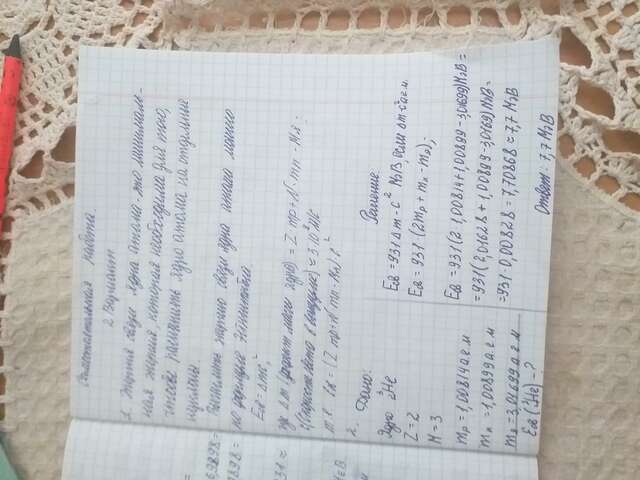 Самостоятельная работа
2 Вариант
1. Энергия связи ядра атома - это минималь-
ная энергия, которая необходима для того,
чтобы расщепить ядро атома на отдельные
нуклоны.
Вычислить энергию связи ядра атома можно
по формуле Эйнштейна:
Eсв = Δmc²,
где Δm (дефект массы ядра) = Z·mp + N·mn - Mя.
c (скорость света в вакууме) ≈ 3·10⁸ м/с
т.е. Eсв = (Z·mp + N·mn - Mя)·c²
2. Дано:
Ядро ³₂He
Z = 2
M = 3
mp = 1,00814 а.е.м
mn = 1,00899 а.е.м
mя = 3,01699 а.е.м
Eсв (³₂He) - ?
Решение
Eсв = 931 Δm - c² МэВ, если
Eсв = 931 (2mp + mn - mя);
Eсв = 931(2·1,00814 + 1,00899 - 3,01699) МэВ =
= 931(2,01628 + 1,00899 - 3,01699) МэВ =
= 931·0,00828 = 7,70868 ≈ 7,7 МэВ
Ответ: 7,7 МэВ